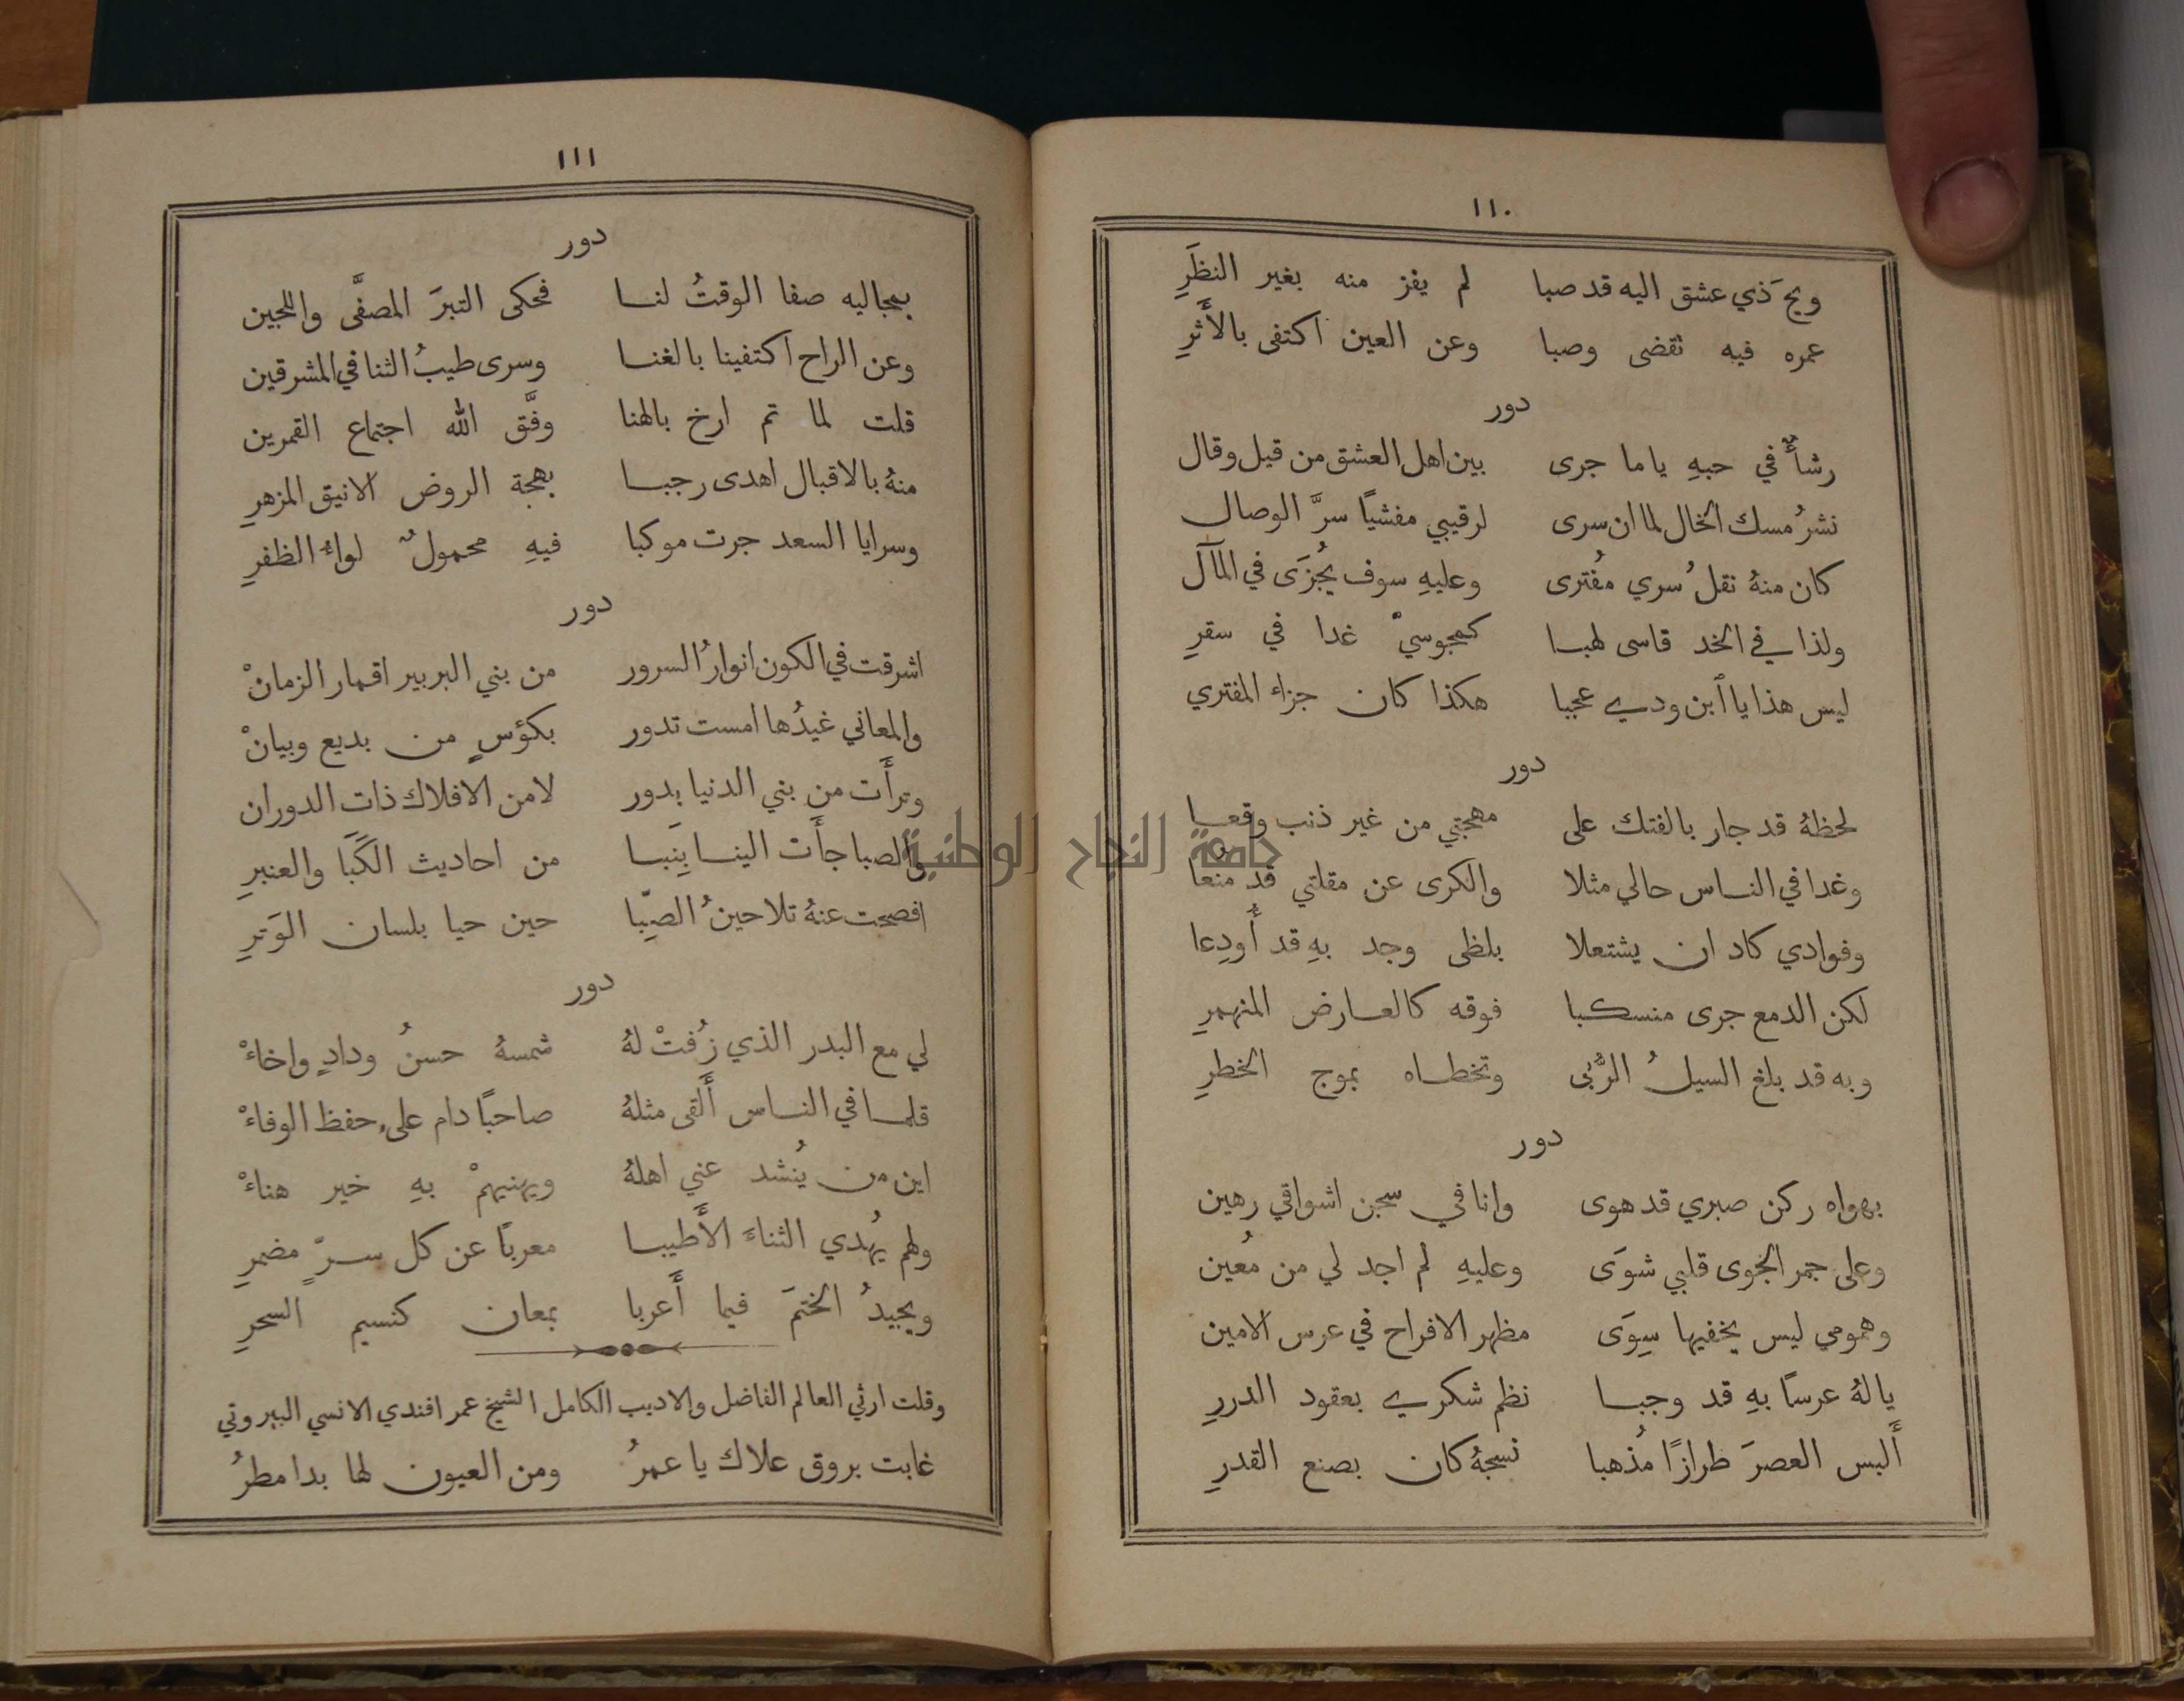 ١١٠
ويح ذي عشق اليه قد صبا لم يفز منه بغير النظَرِ
عمره فيه تقضى وصبا وعن العين اكتفى بالأَثرِ
دور
رشأٌ في حبهِ ياما جرى بين اهل العشق من قيل وقال
نشرُ مسك الخال لما ان سرى لرقيبي مفشيًا سرَّ الوصال
كان منهُ نقلُ سري مفُترى وعليهِ سوف يُجزَى في المآل
ولذا في الخد قاسى لهبا كمجوسيْ غدا في سقرِ
ليس هذا يا أبن ودي عجبا هكذا كان جزاء المفتري
دور
لحظهُ قد جار بالفتك على مهجتي من غير ذنب وقعا
وغدا في الناس حالي مثلا والكرى عن مقلتي قد مُنعا
وفوادي كاد ان يشتعلا بلظى وجد بهِ قد أُودِعا
لكن الدمع جرى منسكبا فوقه كالعارض المنهمرِ
وبه قد بلغ السيلُ الرُّبى وتخطاه بموج الخطرِ
دور
بهواه ركن صبري قد هوى وانا في سجن اشواقي رهين
وعلى جمر الجوى قلبي شوَى وعليهِ لم اجد لي من مُعين
وهمومي ليس يخفيها سِوَى مظهر الافراح في عرس الامين
يا لهُ عرسًا بهِ قد وجبا نظم شكري بعقود الدررِ
أَلبس العصرَ طرازًا مُذهبا نسجهُ كان بصنع القدرِ
١١١
دور
بمجاليه صفا الوقتُ لنا فحكى التبرَ المصفَّى واللجين
وعن الراح اكتفينا بالغنا وسرى طيبُ الثنا في المشرقين
قلت لما تم ارخ بالهنا وفَّق الله اجتماع القمرين
منهُ بالاقبال اهدى رجبا بهجة الروض الانيق المزهرِ
وسرايا السعد جرت موكبا فيهِ محمولٌ لواءُ الظفرِ
دور
اشرقت في الكون انوارُ السرور من بني البربير اقمار الزمانْ
والمعاني غيدُها امست تدور بكؤسٍ من بديع وبيانْ
وترأَت من بني الدنيا بدور لا من الافلاك ذات الدوران
والصبا جأَت الينا بِنَبا من احاديث الكَبَا والعنبرِ
افصحت عنهُ تلاحينُ الصِّبا حين حيا بلسان الوَترِ
دور
لي مع البدر الذي زُفتْ لهُ شمسهُ حسنُ ودادٍ واخاءْ
قلما في الناس أَلقى مثلهُ صاحبًا دام على حفظ الوفاءْ
اين من يُنشد عني اهلهُ ويهنيهمْ بهِ خير هناءْ
ولهم يُهدي الثناءَ الأَطيبا معربًا عن كل سرٍّ مضمرِ
ويجيدُ الختمَ فيما أَعربا بمعان كنسيم السحرِ
وقلت ارثي العالم الفاضل والاديب الكامل الشيخ عمر افندي الانسي البيروتي
غابت بروق علاك يا عمرُ ومن العيون لها بدا مطرُ
جامعة النجاح الوطنية